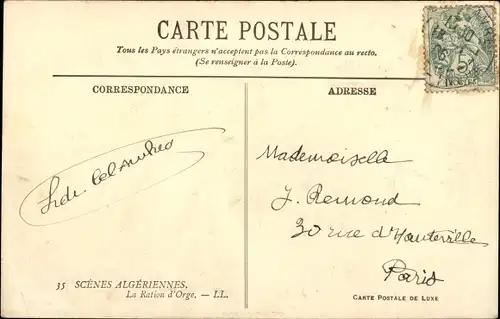 CARTE POSTALE
Tous les Pays étrangers n'acceptent pas la Correspondance au recto.
(Se renseigner à la Poste).
CORRESPONDANCE
ADRESSE
Sidi Bel Abbès
Mademoiselle
J. Remond
30 rue d'Hauteville
Paris
35 SCÈNES ALGÉRIENNES.
La Ration d'Orge. — LL.
CARTE POSTALE DE LUXE